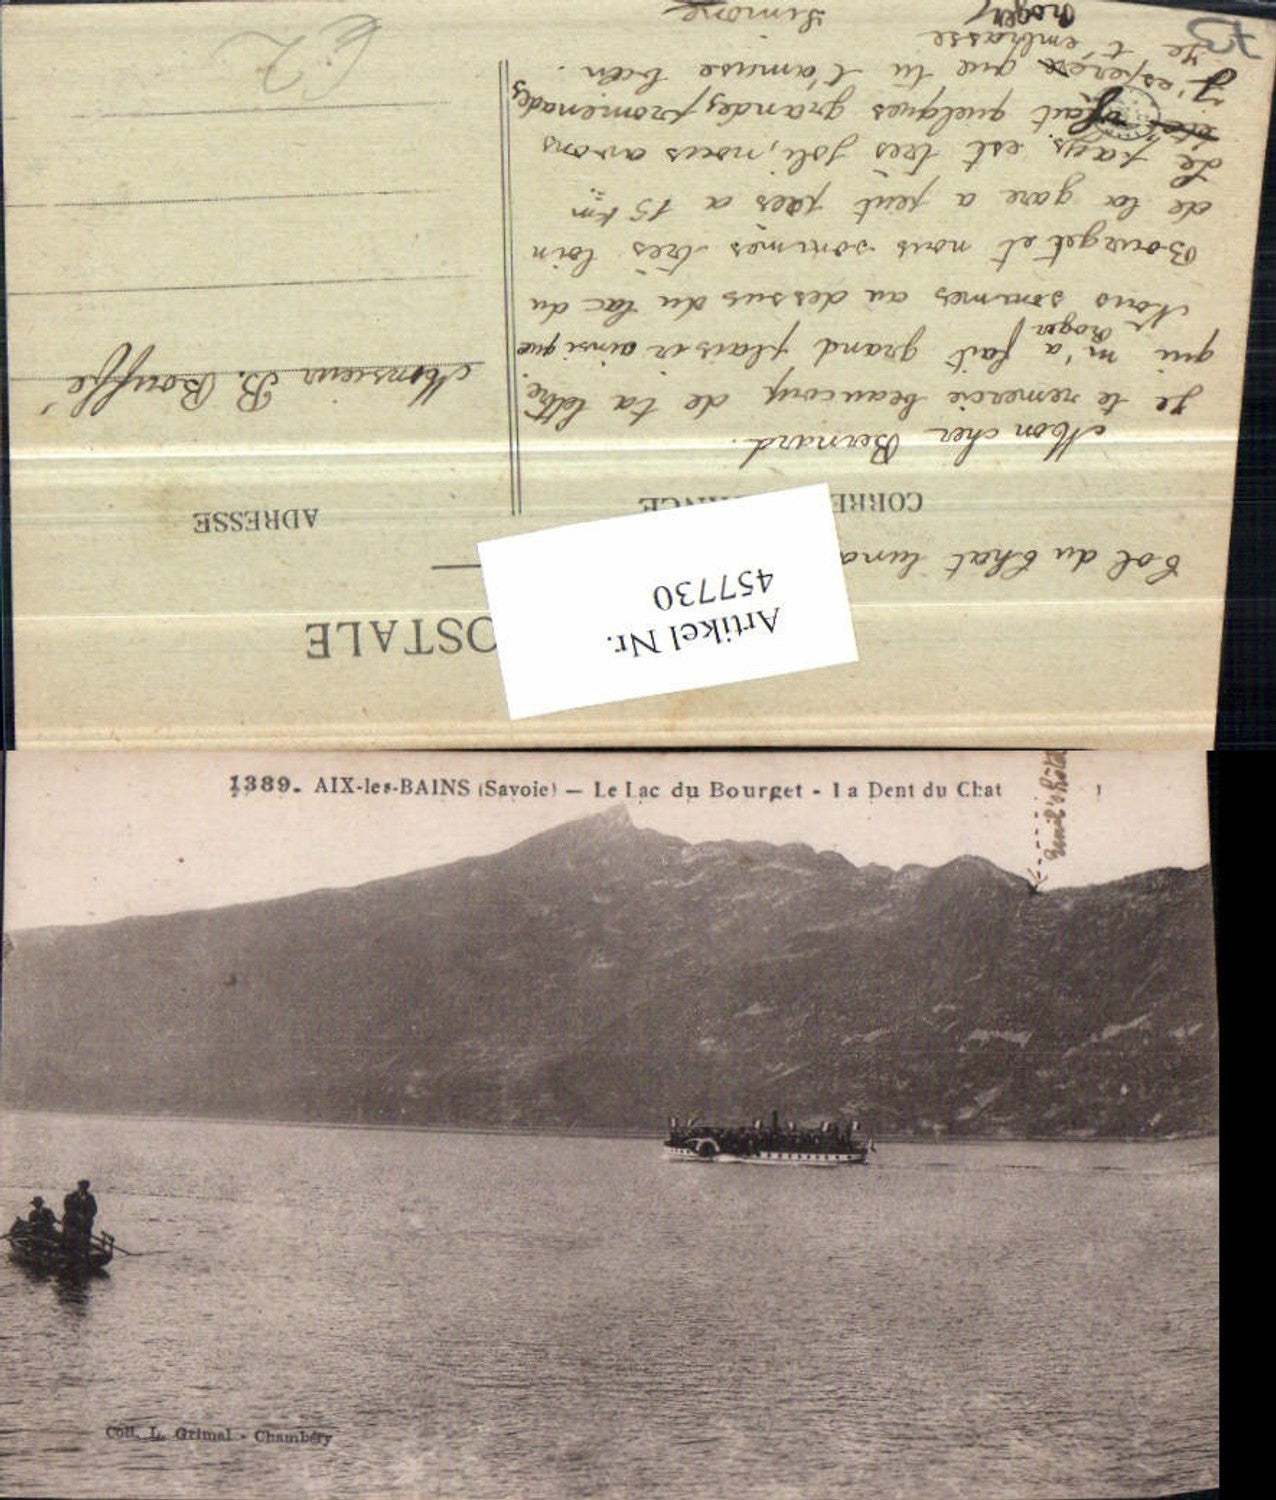 POSTALE
Artikel Nr.
457730
Col du Chat
CORRE NCE
ADRESSE
Mon cher Bernard.
Je te remercie beaucoup de ta lettre.
qui m'a fait grand plaisir ainsi que
Roger
Nous sommes au dessus du lac du
Bourget et nous sommes très loin
de la gare a peut près a 15 km
Le pays est très joli, nous avons
fait quelques grandes promenades
J'espère que tu t'amuse bien.
Je t'embrasse
Simone Roger
Monsieur B. Bouffé
73
1389. AIX-les-BAINS (Savoie) — Le Lac du Bourget - La Dent du Chat
Coll. L. Grimal - Chambéry